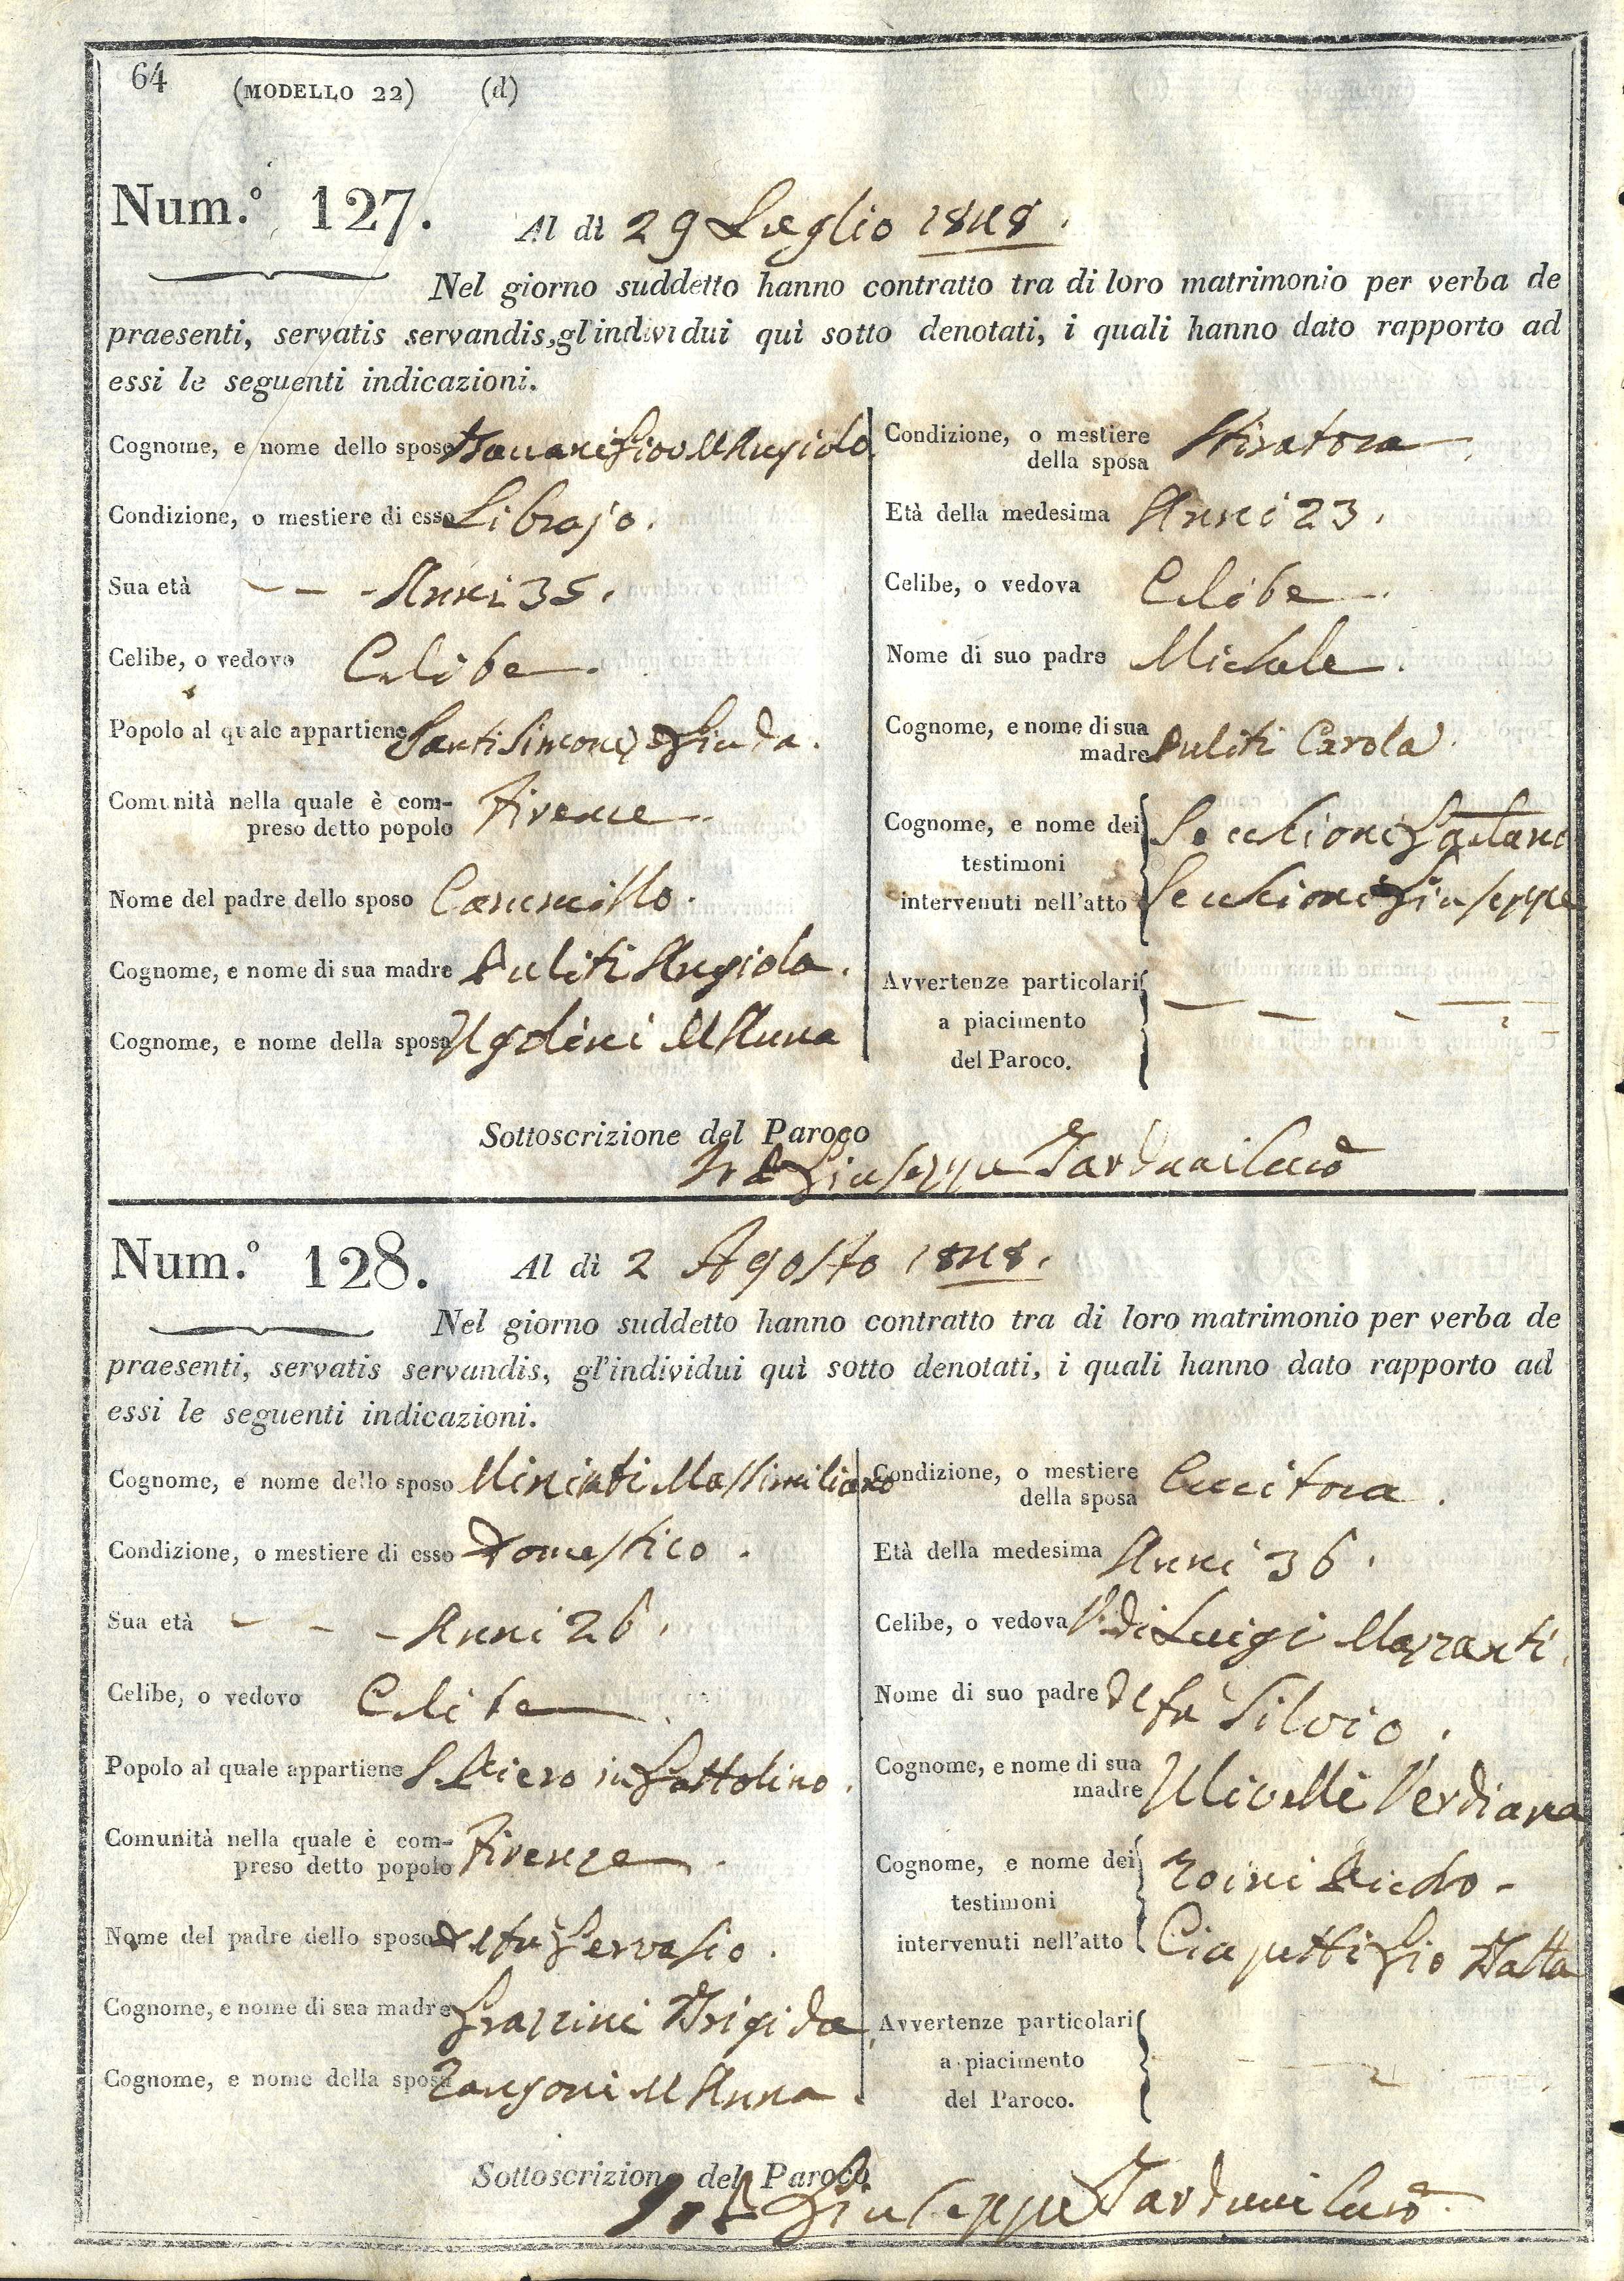 64 (MODELLO 22) (d)
Num.º 127. Al dì 29 Luglio 1848.
Nel giorno suddetto hanno contratto tra di loro matrimonio per verba de
praesenti, servatis servandis, gl'individui quì sotto denotati, i quali hanno dato rapporto ad
essi le seguenti indicazioni.
Cognome, e nome dello sposo Angiolo
Condizione, o mestiere di esso Librajo.
Sua età - - - Anni 35.
Celibe, o vedovo Celibe.
Popolo al quale appartiene Santi Simone, e Giuda.
Comunità nella quale è com-
preso detto popolo Firenze.
Nome del padre dello sposo Cammillo.
Cognome, e nome di sua madre Puliti Angiola.
Cognome, e nome della sposa Ugolini M Anna
Condizione, o mestiere
della sposa Stiratora.
Età della medesima Anni 23.
Celibe, o vedova Celibe.
Nome di suo padre Michele.
Cognome, e nome di sua
madre Puliti Carola.
Cognome, e nome dei Secchioni Gaetano
testimoni
intervenuti nell'atto Secchioni Giuseppe
Avvertenze particolari
a piacimento
del Paroco.
Sottoscrizione del Paroco
Giuseppe Tarduni Curo
Num.º 128. Al dì 2 Agosto 1848.
Nel giorno suddetto hanno contratto tra di loro matrimonio per verba de
praesenti, servatis servandis, gl'individui quì sotto denotati, i quali hanno dato rapporto ad
essi le seguenti indicazioni.
Cognome, e nome dello sposo Miniati Massimiliano
Condizione, o mestiere di esso Domestico.
Sua età - - - Anni 26.
Celibe, o vedovo Celibe
Popolo al quale appartiene S. Piero in Gattolino.
Comunità nella quale è com-
preso detto popolo Firenze.
Nome del padre dello sposo del fu Gervasio.
Cognome, e nome di sua madre Grazzini Brigida
Cognome, e nome della sposa M Anna.
Condizione, o mestiere
della sposa Cucitora.
Età della medesima Anni 36.
Celibe, o vedova V. di Luigi Mazzanti.
Nome di suo padre del fu Silvio.
Cognome, e nome di sua
madre Ulivelli Verdiana
Cognome, e nome dei
testimoni
intervenuti nell'atto Ciapetti Gio Batta
Avvertenze particolari
a piacimento
del Paroco.
Sottoscrizione del Paroco
Giuseppe Tarduni Curo